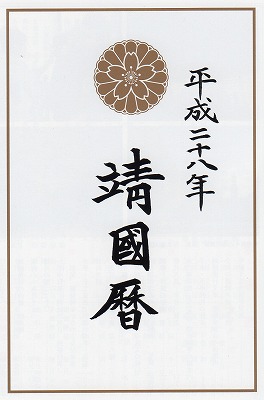 平成二十八年
靖國暦